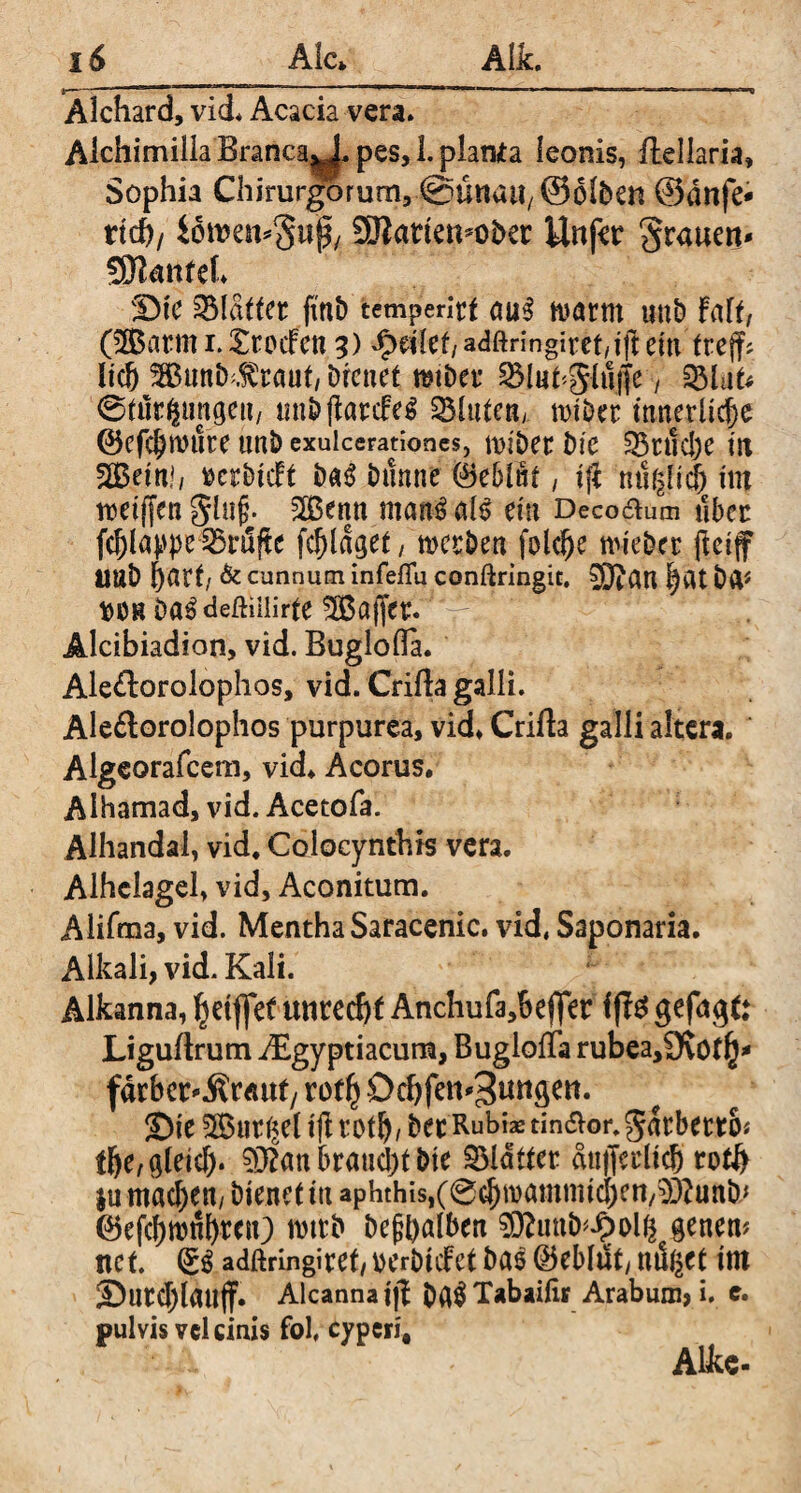 16 Alc. Alk.
Alchard, vid. Acacia vera.
Alchimilla Branca, l. pes, l. planta leonis, ſtellaria,
Sophia Chirurgorum, Sünau, Gölden Gänſe-
rich, Löwen-Fuß, Marien-oder Unſer Frauen-
Mantel.
Die Blätter ſind temperirt aus warm und kalt,
(Warm 1. Trocken 3) Heilet, adſtringiret, iſt ein treff-
lich Wund-Kraut, dienet wider Blut-Flüſſe, Blut-
Stürtzungen, und ſtarckes Bluten, wider innerliche
Geſchwüre und exulcerationes, wider die Brüche in
Wein!, verdickt das dünne Geblüt, iſt nützlich im
weiſſen Fluß. Wenn mans als ein Decoctum über
ſchlappe Brüſte ſchläget, werden ſolche wieder ſteiff
und hart, & cunnum infeſſu conſtringit. Man hat da-
von das deſtillirte Waſſer.
Alcibiadion, vid. Bugloſſa.
Alectorolophos, vid. Criſta galli.
Alectorolophos purpurea, vid. Criſta galli altera.
Algeoraſcem, vid. Acorus.
Alhamad, vid. Acetoſa.
Alhandal, vid. Colocynthis vera.
Alhelagel, vid, Aconitum.
Aliſma, vid. Mentha Saracenic. vid. Saponaria.
Alkali, vid. Kali.
Alkanna, heiſſet unrecht Anchuſa, beſſer iſts geſagt:
Liguſtrum Ægyptiacum, Bugloſſa rubea, Roth-
färber-Kraut, roth Ochſen-Zungen.
Die Wurtzel iſt roth, der Rubiæ tinctor. Färberrö-
the, gleich. Man braucht die Blätter äuſſerlich roth
zu machen, dienet in aphthis, (Schwammichen, Mund-
Geſchwühren) wird deßhalben Mund-Holtz genen-
net. Es adſtringiret, verdicket das Geblüt, nützet im
Durchlauff. Alcanna iſt das Tabaiſir Arabum, i. e.
pulvis vel cinis fol. cyperi.
Alke-